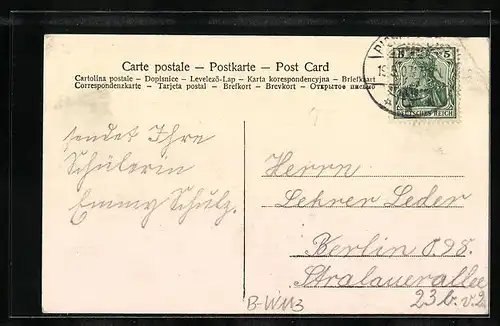 Carte postale — Postkarte — Post Card
Cartolina postale – Dopisnice – Levelező-Lap – Karta korespondencyjna – Briefkaart
Correspondenzkarte – Tarjeta postal – Brefkort – Brevkort – Открытое письмо
5
DEUTSCHES REICH
sendet Ihre
Schülerin
Emmy Schulz.
Herrn
Lehrer Leder
Berlin O.98.
Stralauerallee
23b. v. 2
B-WM3